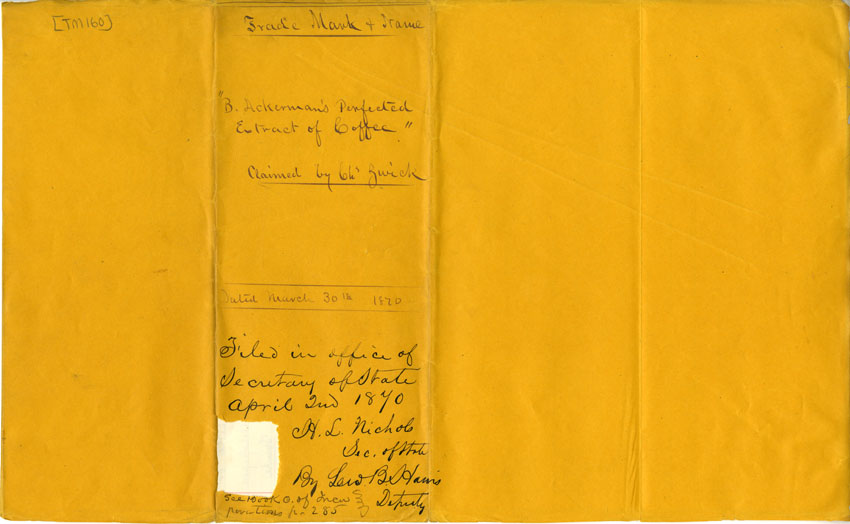 [TM160]
Trade Mark & Name
"B. Ackerman's Perfected
Extract of Coffee."
Claimed by Chs Zwick
Dated March 30th 1870
Filed in office of
Secretary of State
April 2nd 1870
H. L. Nichols
Sec. of State
By Lew. B. Harris
Deputy
See Book O. of Incor
porations p. 285